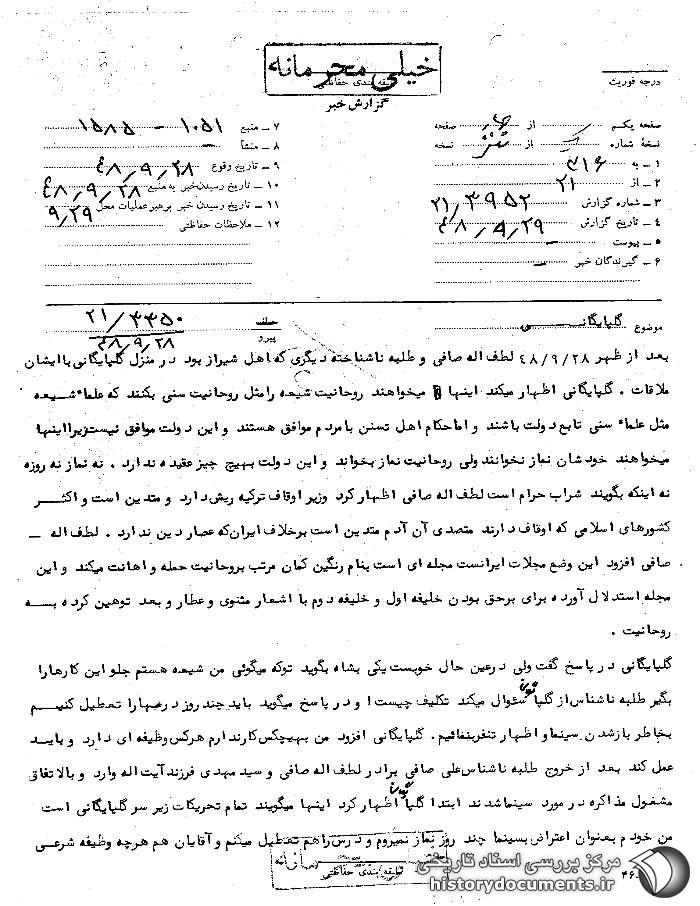 خیلی محرمانه
طبقه بندی حفاظتی
گزارش خبر
درجه فوریت
صفحه یکم از صفحه
نسخهٔ شماره از نسخه
۱ ـ به ۳۱۶
۲ ـ از ۲۱
۳ ـ شماره گزارش ۲۱/۳۹۵۲
۴ ـ تاریخ گزارش ۴۸/۹/۲۹
۵ ـ پیوست
۶ ـ گیرندگان خبر
۷ ـ منبع ۱۰۵۱ – ۱۵۸۵
۸ ـ منشأ
۹ ـ تاریخ وقوع ۴۸/۹/۲۸
۱۰ ـ تاریخ رسیدن خبر به منبع ۴۸/۹/۲۸
۱۱ ـ تاریخ رسیدن خبر برهبر عملیات محل ۹/۲۹
۱۲ ـ ملاحظات حفاظتی
موضوع گلپایگانــی
پیرو
۲۱/۳۳۵۰
۴۸/۹/۲۸
بعد از ظهر ۴۸/۹/۲۸ لطف اله صافی و طلبه ناشناخته دیگری که اهل شیراز بود در منزل گلپایگانی باایشان
ملاقات . گلپایگانی اظهار میکند اینها میخواهند روحانیت شیعه را مثل روحانیت سنی بکنند که علماء شیــعه
مثل علماء سنی تابع دولت باشند و اما حکام اهل تسنن با مردم موافق هستند و این دولت موافق نیست زیرا اینها
میخواهند خودشان نماز نخوانند ولی روحانیت نماز بخواند و این دولت بهیچ چیز عقیده ندارد . نه نماز نه روزه
نه اینکه بگویند شراب حرام است لطف اله صافی اظهار کرد وزیر اوقاف ترکیه ریش دارد و متدین است و اکثــر
کشورهای اسلامی که اوقاف دارند متصدی آن آدم متدین است برخلاف ایران که عصار دین ندارد . لطف اله ـ
صافی افزود این وضع مجلات ایرانست مجله ای است بنام رنگین کمان مرتب بروحانیت حمله و اهانت میکند و این
مجله استدلال آورده برای برحق بودن خلیفه اول و خلیفه دوم با اشعار مثنوی و عطار و بعد توهین کرده بـــه
روحانیت .
گلپایگانی در پاسخ گفت ولی درعین حال خوبست یکی بشاه بگوید توکه میگوئی من شیعه هستم جلو این کارها را
بگیر طلبه ناشناس از گلپایگانی سئوال میکند تکلیف چیست ؟ و در پاسخ میگوید باید چند روز درسها را تعطیل کنیــم
بخاطر بازشدن سینما و اظهار تنفر بنمائیم . گلپایگانی افزود من بهیچکس کار ندارم هرکس وظیفه ای دارد و بایــد
عمل کند بعد از خروج طلبه ناشناس علی صافی برادر لطف اله صافی و سید مهدی فرزند آیت اله وارد و بالاتفاق
مشغول مذاکره در مورد سینما شدند ابتدا گلپایگانی اظهار کرد اینها میگویند تمام تحریکات زیر سر گلپایگانی است
من خودم بعنوان اعتراض بسینما چند روز نماز نمیروم و درس را هم تعطیل میکنم و آقایان هم هرچه وظیفه شرعی
طبقه بندی حفاظتی
مرکز بررسی اسناد تاریخی
historydocuments.ir